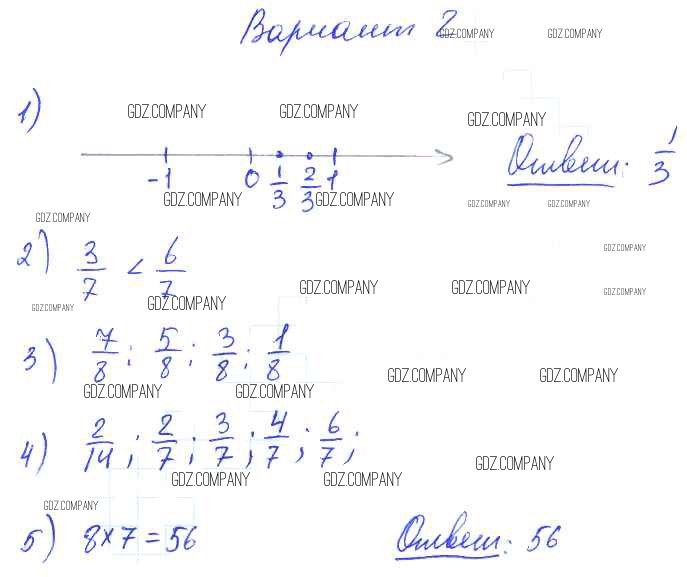 Вариант 2
GDZ.COMPANY GDZ.COMPANY
1) GDZ.COMPANY GDZ.COMPANY GDZ.COMPANY
-1 0 1/3 2/3 1 Ответ: 1/3
GDZ.COMPANY GDZ.COMPANY GDZ.COMPANY GDZ.COMPANY
GDZ.COMPANY
2) 3/7 < 6/7 GDZ.COMPANY
GDZ.COMPANY GDZ.COMPANY GDZ.COMPANY
GDZ.COMPANY GDZ.COMPANY
3) 7/8; 5/8; 3/8; 1/8
GDZ.COMPANY GDZ.COMPANY
GDZ.COMPANY GDZ.COMPANY
4) 2/14; 2/7; 3/7; 4/7; 6/7;
GDZ.COMPANY
GDZ.COMPANY GDZ.COMPANY
GDZ.COMPANY
5) 8×7=56 Ответ: 56